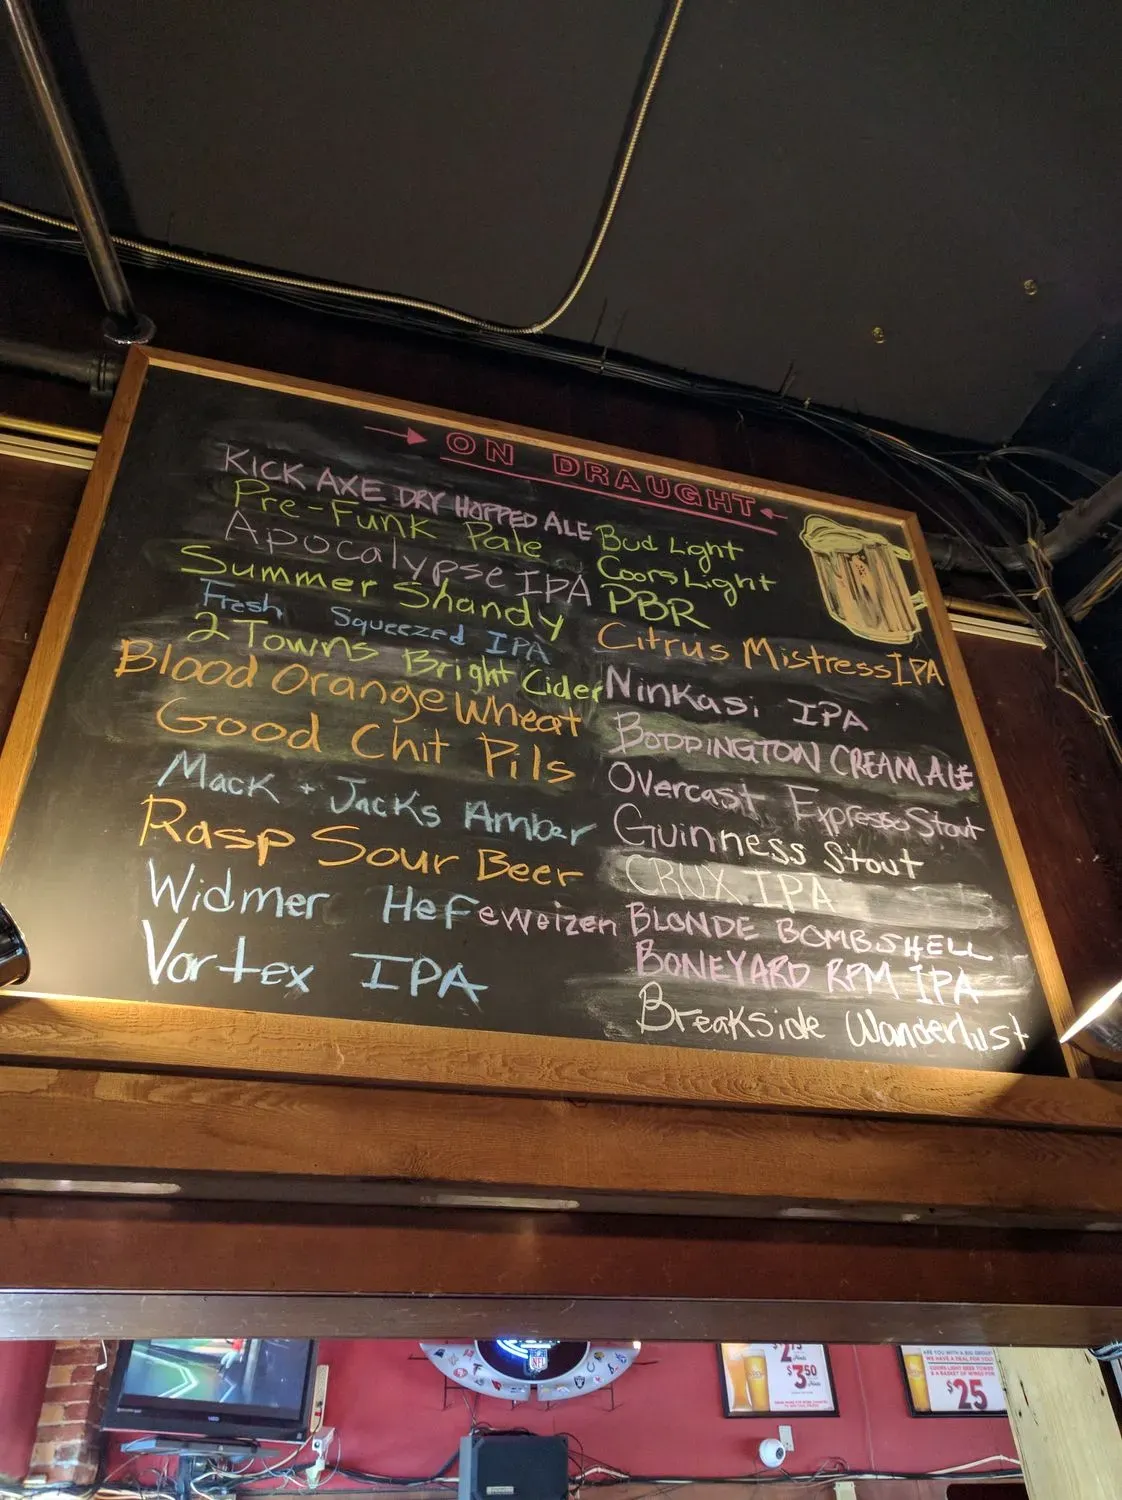 ON DRAUGHT
KICK AXE DRY HOPPED ALE
Pre-Funk Pale
Apocalypse IPA
Summer Shandy
Fresh Squeezed IPA
2 Towns Bright Cider
Blood Orange Wheat
Good Chit Pils
Mack + Jacks Amber
Rasp Sour Beer
Widmer Hefeweizen
Vortex IPA
Bud Light
Coors Light
PBR
Citrus Mistress IPA
Ninkasi IPA
BODDINGTON CREAM ALE
Overcast Expresso Stout
Guinness Stout
CRUX IPA
BLONDE BOMBSHELL
BONEYARD RPM IPA
Breakside Wanderlust
NFL
$3.50
ARE YOU WITH A BIG GROUP?
WE HAVE A DEAL FOR YOU!
COORS LIGHT BEER TOWER
& A BASKET OF WINGS FOR
$25